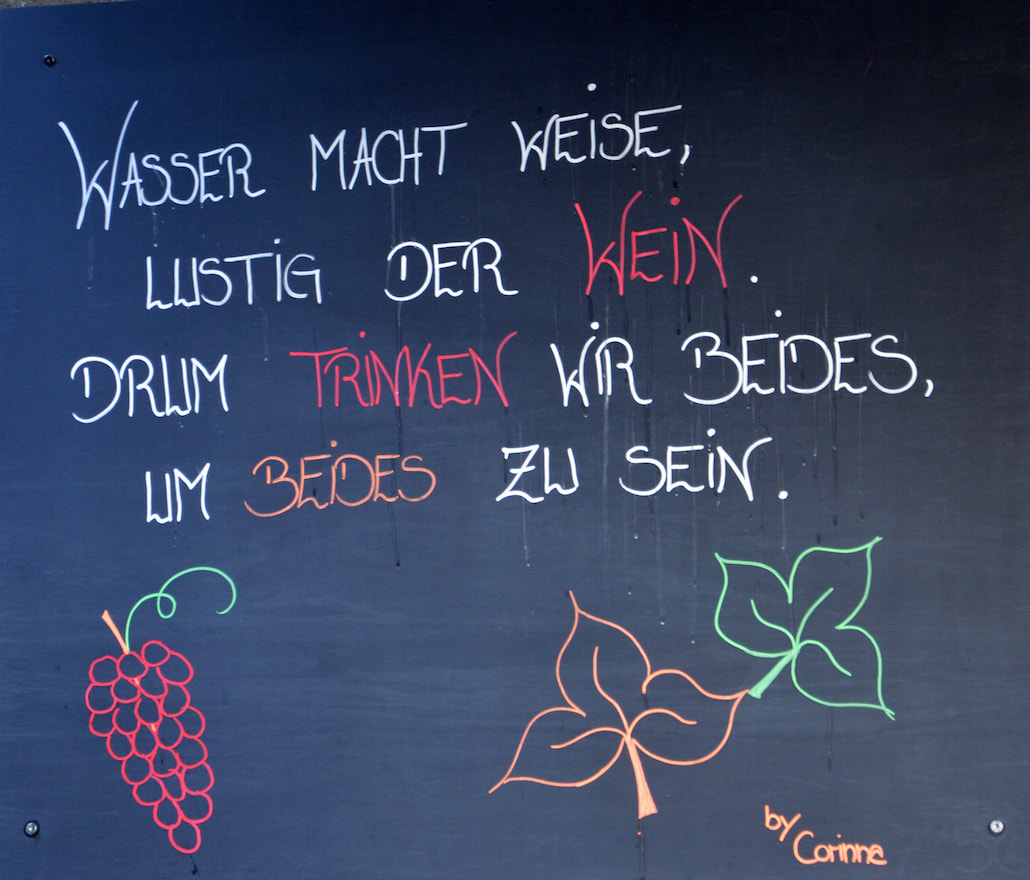 WASSER MACHT WEISE,
LUSTIG DER WEIN.
DRUM TRINKEN WIR BEIDES,
UM BEIDES ZU SEIN.
by
Corinna